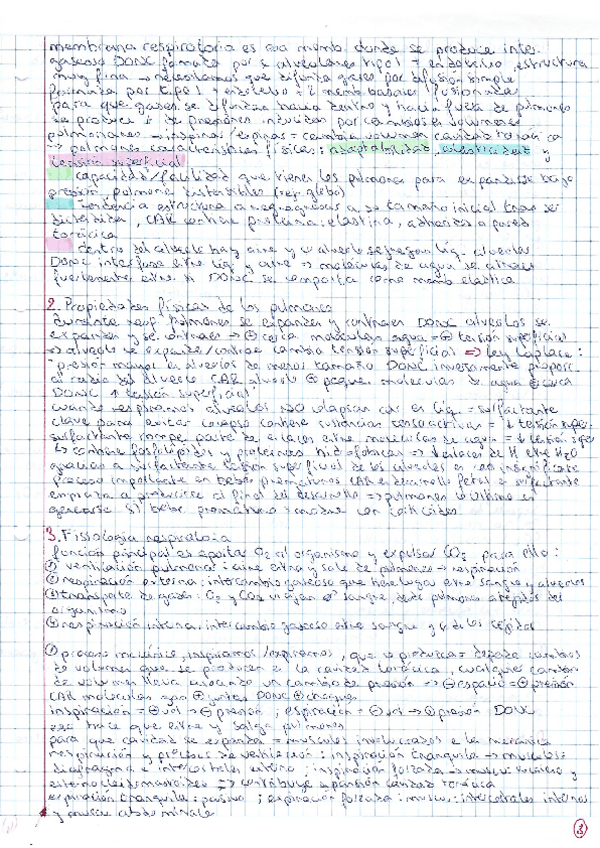 membrana respiratoria es una memb. donde se produce inter.
gaseoso DONC formada por alveolares tipo 1 + endotelio, estructura
muy fina → necesitamos que difunda gases por difusión simple
formada por tipo 1 y endotelio + 2 memb basales fusionadas
para que gases se difundan hacia dentro y hacia fuera de pulmones
se produce de presiones inducidas por cambios en volúmenes
pulmonares → inspiras/espiras = cambia volumen cavidad torácica
→ pulmones características físicas: adaptabilidad, elasticidad y
tensión superficial
capacidad/facilidad que tienen los pulmones para expandirse bajo
presión, pulmones distensibles (ej. globo)
tendencia estructura a regresar a su tamaño inicial tras ser
distendida, CAR contiene proteína: elastina, adheridos a pared
torácica
dentro del alveolo hay aire y alveolo segregan líq. alveolar
DONC interfase entre líq y aire → moléculas de agua se atraen
fuertemente entre sí DONC se comporta como memb elástica
2. Propiedades físicas de los pulmones
durante resp. pulmones se expanden y contraen DONC alveolos se
expanden y se contraen → ⊕ cerca moléculas agua = ⊕ tensión superficial
→ alveolo se expande/contrae cambia tensión superficial ⇒ ley Laplace:
"presión mayor en alveolos de menor tamaño DONC inversamente proporc.
al radio del alveolo CAR alveolo ⊕ peque. moleculas de agua ⊕ cerca
DONC ↑ tensión superficial."
cuando respiramos alveolos NO colapsan car es líq. = surfactante
clave para evitar colapso contiene sustancias tensoactivas = ↓ tensión super.
surfactante rompe parte de enlaces entre moléculas de agua = ↓ tensión super
↳ contiene fosfolípidos y proteínas hidrofóbicas → ↓ enlaces de H entre H₂O
gracias a surfactante tensión superficial de los alveolos es casi insignificante
proceso importante en bebés prematuros CAR en desarrollo fetal el surfactante
empieza a producirse al final del desarrollo → pulmones lo último en
generarse. Si bebé prematuro → madre con corticoides
3. Fisiología respiratoria
función principal es aportar O₂ al organismo y expulsar CO₂ para ello:
① ventilación pulmonar: aire entra y sale de pulmones → respiración
② respiración externa: intercambio gaseoso que tiene lugar entre sangre y alveolos
③ transporte de gases: O₂ y CO₂ viajan en sangre, desde pulmones a tejidos del
organismo
④ respiración interna: intercambio gaseoso entre sangre y de los tejidos
① proceso mecánico, inspiramos/espiramos, que se produzcan depende cambios
de volumen que se producen en la cavidad torácica, cualquier cambio
de volumen lleva asociado un cambio de presión → ⊖ espacio = ⊕ presión
CAR moléculas van ⊕ juntas DONC ⊕ choques
inspiración = ⊕ vol → ⊖ presión; espiración = ⊖ vol → ⊕ presión DONC
eso hace que entre y salga pulmones
para que cavidad se expanda = músculos involucrados en la mecánica
respiración y procesos de ventilación: inspiración tranquila → músculos:
diafragma e intercostales externo; inspiración forzada → músculo escaleno y
esternocleidomastoideo → contribuye expansión cavidad torácica
espiración tranquila: pasivo; espiración forzada: muscu: intercostales internos
y muscu abdominales
3